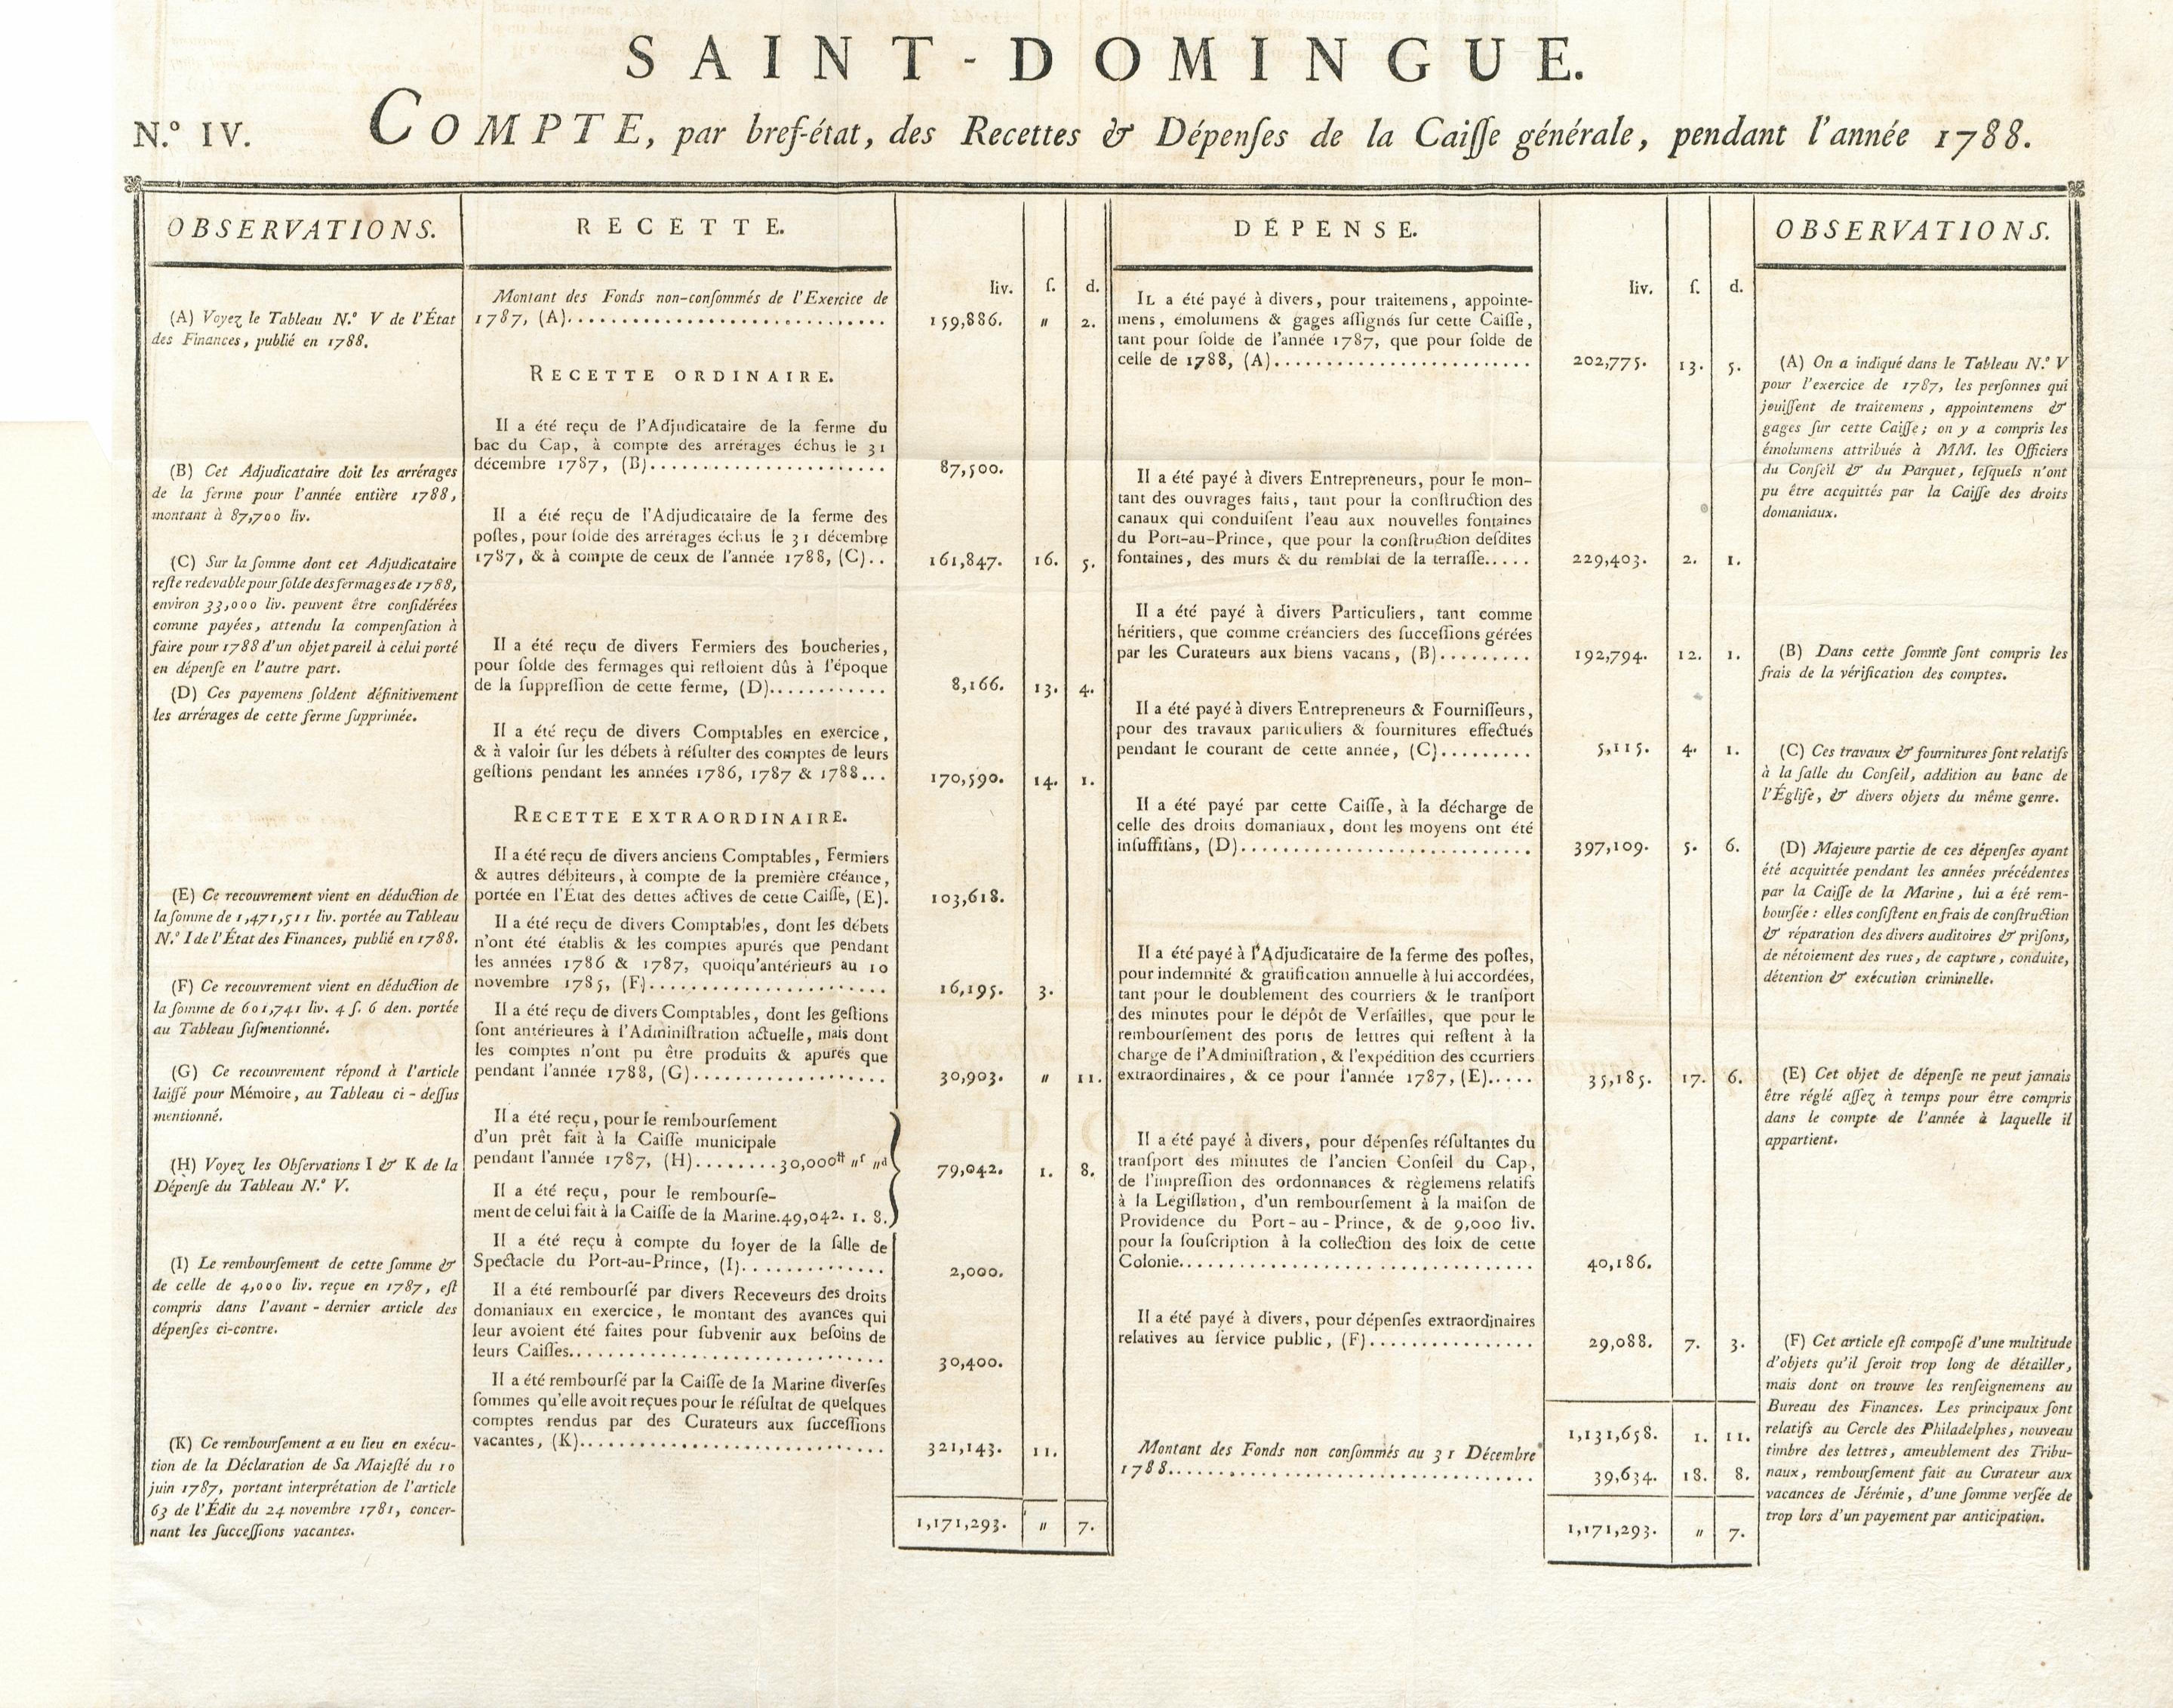 SAINT-DOMINGUE.
N.º IV. COMPTE, par bref-état, des Recettes & Dépenſes de la Caiſſe générale, pendant l'année 1788.
OBSERVATIONS.
(A) Voyez le Tableau N.º V de l'État
des Finances, publié en 1788.
(B) Cet Adjudicataire doit les arrérages
de la ferme pour l'année entière 1788,
montant à 87,700 liv.
(C) Sur la ſomme dont cet Adjudicataire
reſte redevable pour ſolde des fermages de 1788,
environ 33,000 liv. peuvent être conſidérées
comme payées, attendu la compenſation à
faire pour 1788 d'un objet pareil à celui porté
en dépenſe en l'autre part.
(D) Ces payemens ſoldent définitivement
les arrérages de cette ferme ſupprimée.
(E) Ce recouvrement vient en déduction de
la ſomme de 1,471,511 liv. portée au Tableau
N.º I de l'État des Finances, publié en 1788.
(F) Ce recouvrement vient en déduction de
la ſomme de 601,741 liv. 4 ſ. 6 den. portée
au Tableau ſuſmentionné.
(G) Ce recouvrement répond à l'article
laiſſé pour Mémoire, au Tableau ci-deſſus
mentionné.
(H) Voyez les Obſervations I & K de la
Dépenſe du Tableau N.º V.
(I) Le rembourſement de cette ſomme &
de celle de 4,000 liv. reçue en 1787, eſt
compris dans l'avant-dernier article des
dépenſes ci-contre.
(K) Ce rembourſement a eu lieu en exécu-
tion de la Déclaration de Sa Majeſté du 10
juin 1787, portant interprétation de l'article
63 de l'Édit du 24 novembre 1781, concer-
nant les ſucceſſions vacantes.
RECETTE.
liv. ſ. d.
Montant des Fonds non-conſommés de l'Exercice de
1787, (A)............................ 159,886. " 2.
RECETTE ORDINAIRE.
Il a été reçu de l'Adjudicataire de la ferme du
bac du Cap, à compte des arrérages échus le 31
décembre 1787, (B)...................... 87,500.
Il a été reçu de l'Adjudicataire de la ferme des
poſtes, pour ſolde des arrérages échus le 31 décembre
1787, & à compte de ceux de l'année 1788, (C).. 161,847. 16. 5.
Il a été reçu de divers Fermiers des boucheries,
pour ſolde des fermages qui reſtoient dûs à l'époque
de la ſuppreſſion de cette ferme, (D)............ 8,166. 13. 4.
Il a été reçu de divers Comptables en exercice,
& à valoir ſur les débets à réſulter des comptes de leurs
geſtions pendant les années 1786, 1787 & 1788... 170,590. 14. 1.
RECETTE EXTRAORDINAIRE.
Il a été reçu de divers anciens Comptables, Fermiers
& autres débiteurs, à compte de la première créance,
portée en l'État des dettes actives de cette Caiſſe, (E). 103,618.
Il a été reçu de divers Comptables, dont les débets
n'ont été établis & les comptes apurés que pendant
les années 1786 & 1787, quoiqu'antérieurs au 10
novembre 1785, (F)....................... 16,195. 3.
Il a été reçu de divers Comptables, dont les geſtions
ſont antérieures à l'Adminiſtration actuelle, mais dont
les comptes n'ont pu être produits & apurés que
pendant l'année 1788, (G)................... 30,903. " 11.
Il a été reçu, pour le rembourſement
d'un prêt fait à la Caiſſe municipale
pendant l'année 1787, (H)........30,000tt "ſ "d
79,042. 1. 8.
Il a été reçu, pour le rembourſe-
ment de celui fait à la Caiſſe de la Marine.49,042. 1. 8.
Il a été reçu à compte du loyer de la ſalle de
Spectacle du Port-au-Prince, (I).............. 2,000.
Il a été rembourſé par divers Receveurs des droits
domaniaux en exercice, le montant des avances qui
leur avoient été faites pour ſubvenir aux beſoins de
leurs Caiſſes............................... 30,400.
Il a été rembourſé par la Caiſſe de la Marine diverſes
ſommes qu'elle avoit reçues pour le réſultat de quelques
comptes rendus par des Curateurs aux ſucceſſions
vacantes, (K).............................. 321,143. 11.
1,171,293. " 7.
DÉPENSE.
liv. ſ. d.
IL a été payé à divers, pour traitemens, appointe-
mens, émolumens & gages aſſignés ſur cette Caiſſe,
tant pour ſolde de l'année 1787, que pour ſolde de
celle de 1788, (A)........................ 202,775. 13. 5.
Il a été payé à divers Entrepreneurs, pour le mon-
tant des ouvrages faits, tant pour la conſtruction des
canaux qui conduiſent l'eau aux nouvelles fontaines
du Port-au-Prince, que pour la conſtruction deſdites
fontaines, des murs & du remblai de la terraſſe..... 229,403. 2. 1.
Il a été payé à divers Particuliers, tant comme
héritiers, que comme créanciers des ſucceſſions gérées
par les Curateurs aux biens vacans, (B)......... 192,794. 12. 1.
Il a été payé à divers Entrepreneurs & Fourniſſeurs,
pour des travaux particuliers & fournitures effectués
pendant le courant de cette année, (C)......... 5,115. 4. 1.
Il a été payé par cette Caiſſe, à la décharge de
celle des droits domaniaux, dont les moyens ont été
inſuffiſans, (D)............................. 397,109. 5. 6.
Il a été payé à l'Adjudicataire de la ferme des poſtes,
pour indemnité & gratification annuelle à lui accordées,
tant pour le doublement des courriers & le tranſport
des minutes pour le dépôt de Verſailles, que pour le
rembourſement des ports de lettres qui reſtent à la
charge de l'Adminiſtration, & l'expédition des courriers
extraordinaires, & ce pour l'année 1787, (E)..... 35,185. 17. 6.
Il a été payé à divers, pour dépenſes réſultantes du
tranſport des minutes de l'ancien Conſeil du Cap,
de l'impreſſion des ordonnances & règlemens relatifs
à la Légiſlation, d'un rembourſement à la maiſon de
Providence du Port-au-Prince, & de 9,000 liv.
pour la ſouſcription à la collection des loix de cette
Colonie.................................. 40,186.
Il a été payé à divers, pour dépenſes extraordinaires
relatives au ſervice public, (F)................ 29,088. 7. 3.
1,131,658. 1. 11.
Montant des Fonds non conſommés au 31 Décembre
1788................................... 39,634. 18. 8.
1,171,293. " 7.
OBSERVATIONS.
(A) On a indiqué dans le Tableau N.º V
pour l'exercice de 1787, les perſonnes qui
jouiſſent de traitemens, appointemens &
gages ſur cette Caiſſe; on y a compris les
émolumens attribués à MM. les Officiers
du Conſeil & du Parquet, leſquels n'ont
pu être acquittés par la Caiſſe des droits
domaniaux.
(B) Dans cette ſomme ſont compris les
frais de la vérification des comptes.
(C) Ces travaux & fournitures ſont relatifs
à la ſalle du Conſeil, addition au banc de
l'Égliſe, & divers objets du même genre.
(D) Majeure partie de ces dépenſes ayant
été acquittée pendant les années précédentes
par la Caiſſe de la Marine, lui a été rem-
bourſée : elles conſiſtent en frais de conſtruction
& réparation des divers auditoires & priſons,
de nétoiement des rues, de capture, conduite,
détention & exécution criminelle.
(E) Cet objet de dépenſe ne peut jamais
être réglé aſſez à temps pour être compris
dans le compte de l'année à laquelle il
appartient.
(F) Cet article eſt compoſé d'une multitude
d'objets qu'il ſeroit trop long de détailler,
mais dont on trouve les renſeignemens au
Bureau des Finances. Les principaux ſont
relatifs au Cercle des Philadelphes, nouveau
timbre des lettres, ameublement des Tribu-
naux, rembourſement fait au Curateur aux
vacances de Jérémie, d'une ſomme verſée de
trop lors d'un payement par anticipation.